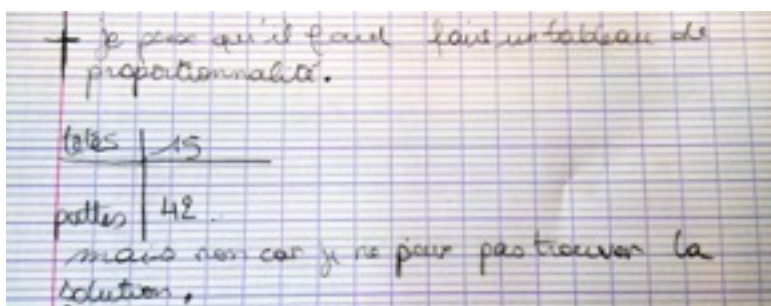 je pense qu'il faut faire un tableau de
proportionnalité.
têtes 15
pattes 42
mais non car je ne peux pas trouver la
solution.